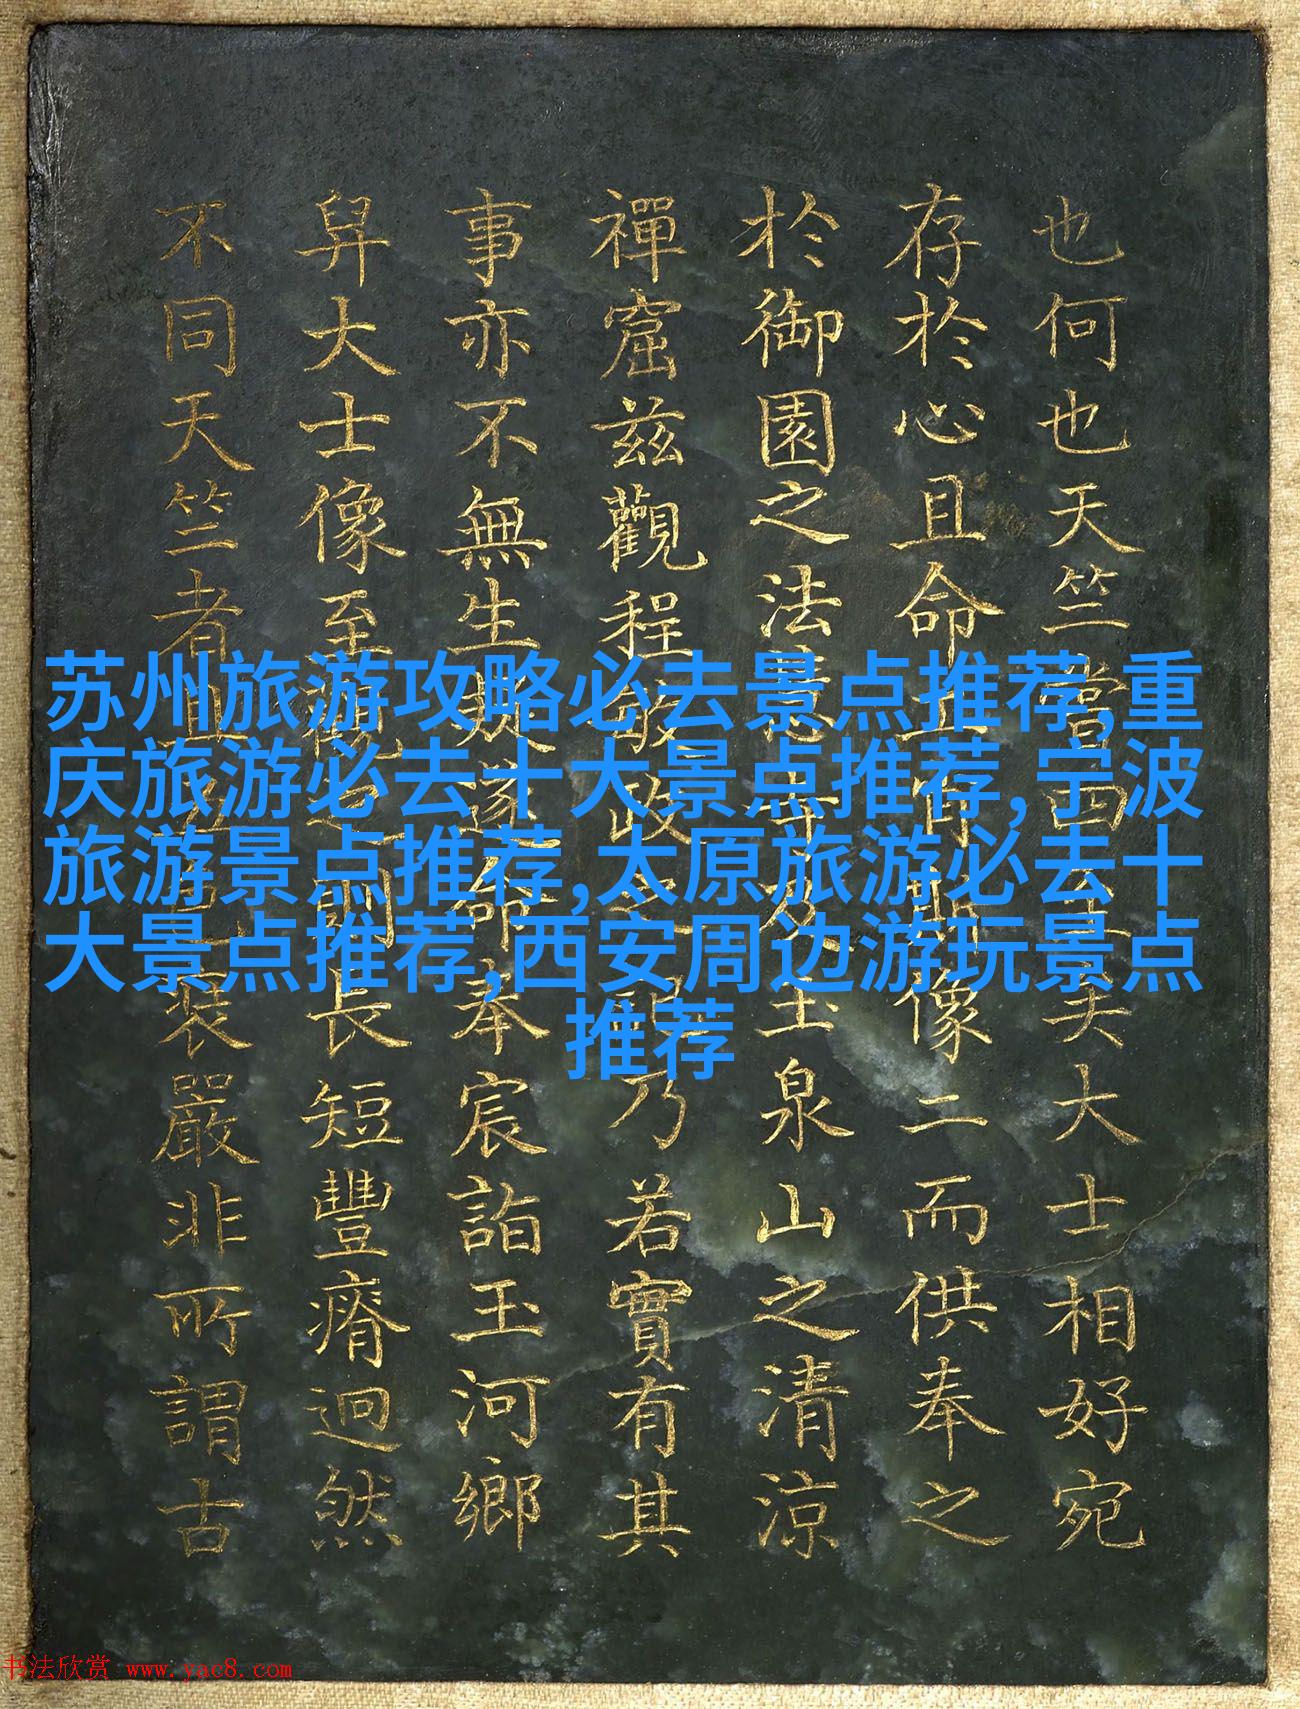 苏州旅游攻略必去景点推荐,重
庆旅游必去十大景点推荐,宁波
旅游景点推荐,太原旅游必去十
大景点推荐,西安周边游玩景点
推荐
也何也天竺嘗四大士相好宛
存於心且命工肖像二而供奉之
於御園之法慧寺及玉泉山之清涼
禪窟兹觀程敏政之記乃若實有其
事亦不無生疑遂命奉宸詣玉河鄉
舁大士像至觀之則長短豐瘠迥然
不同天竺者裝嚴非所謂古
书法欣赏 www.yac8.com